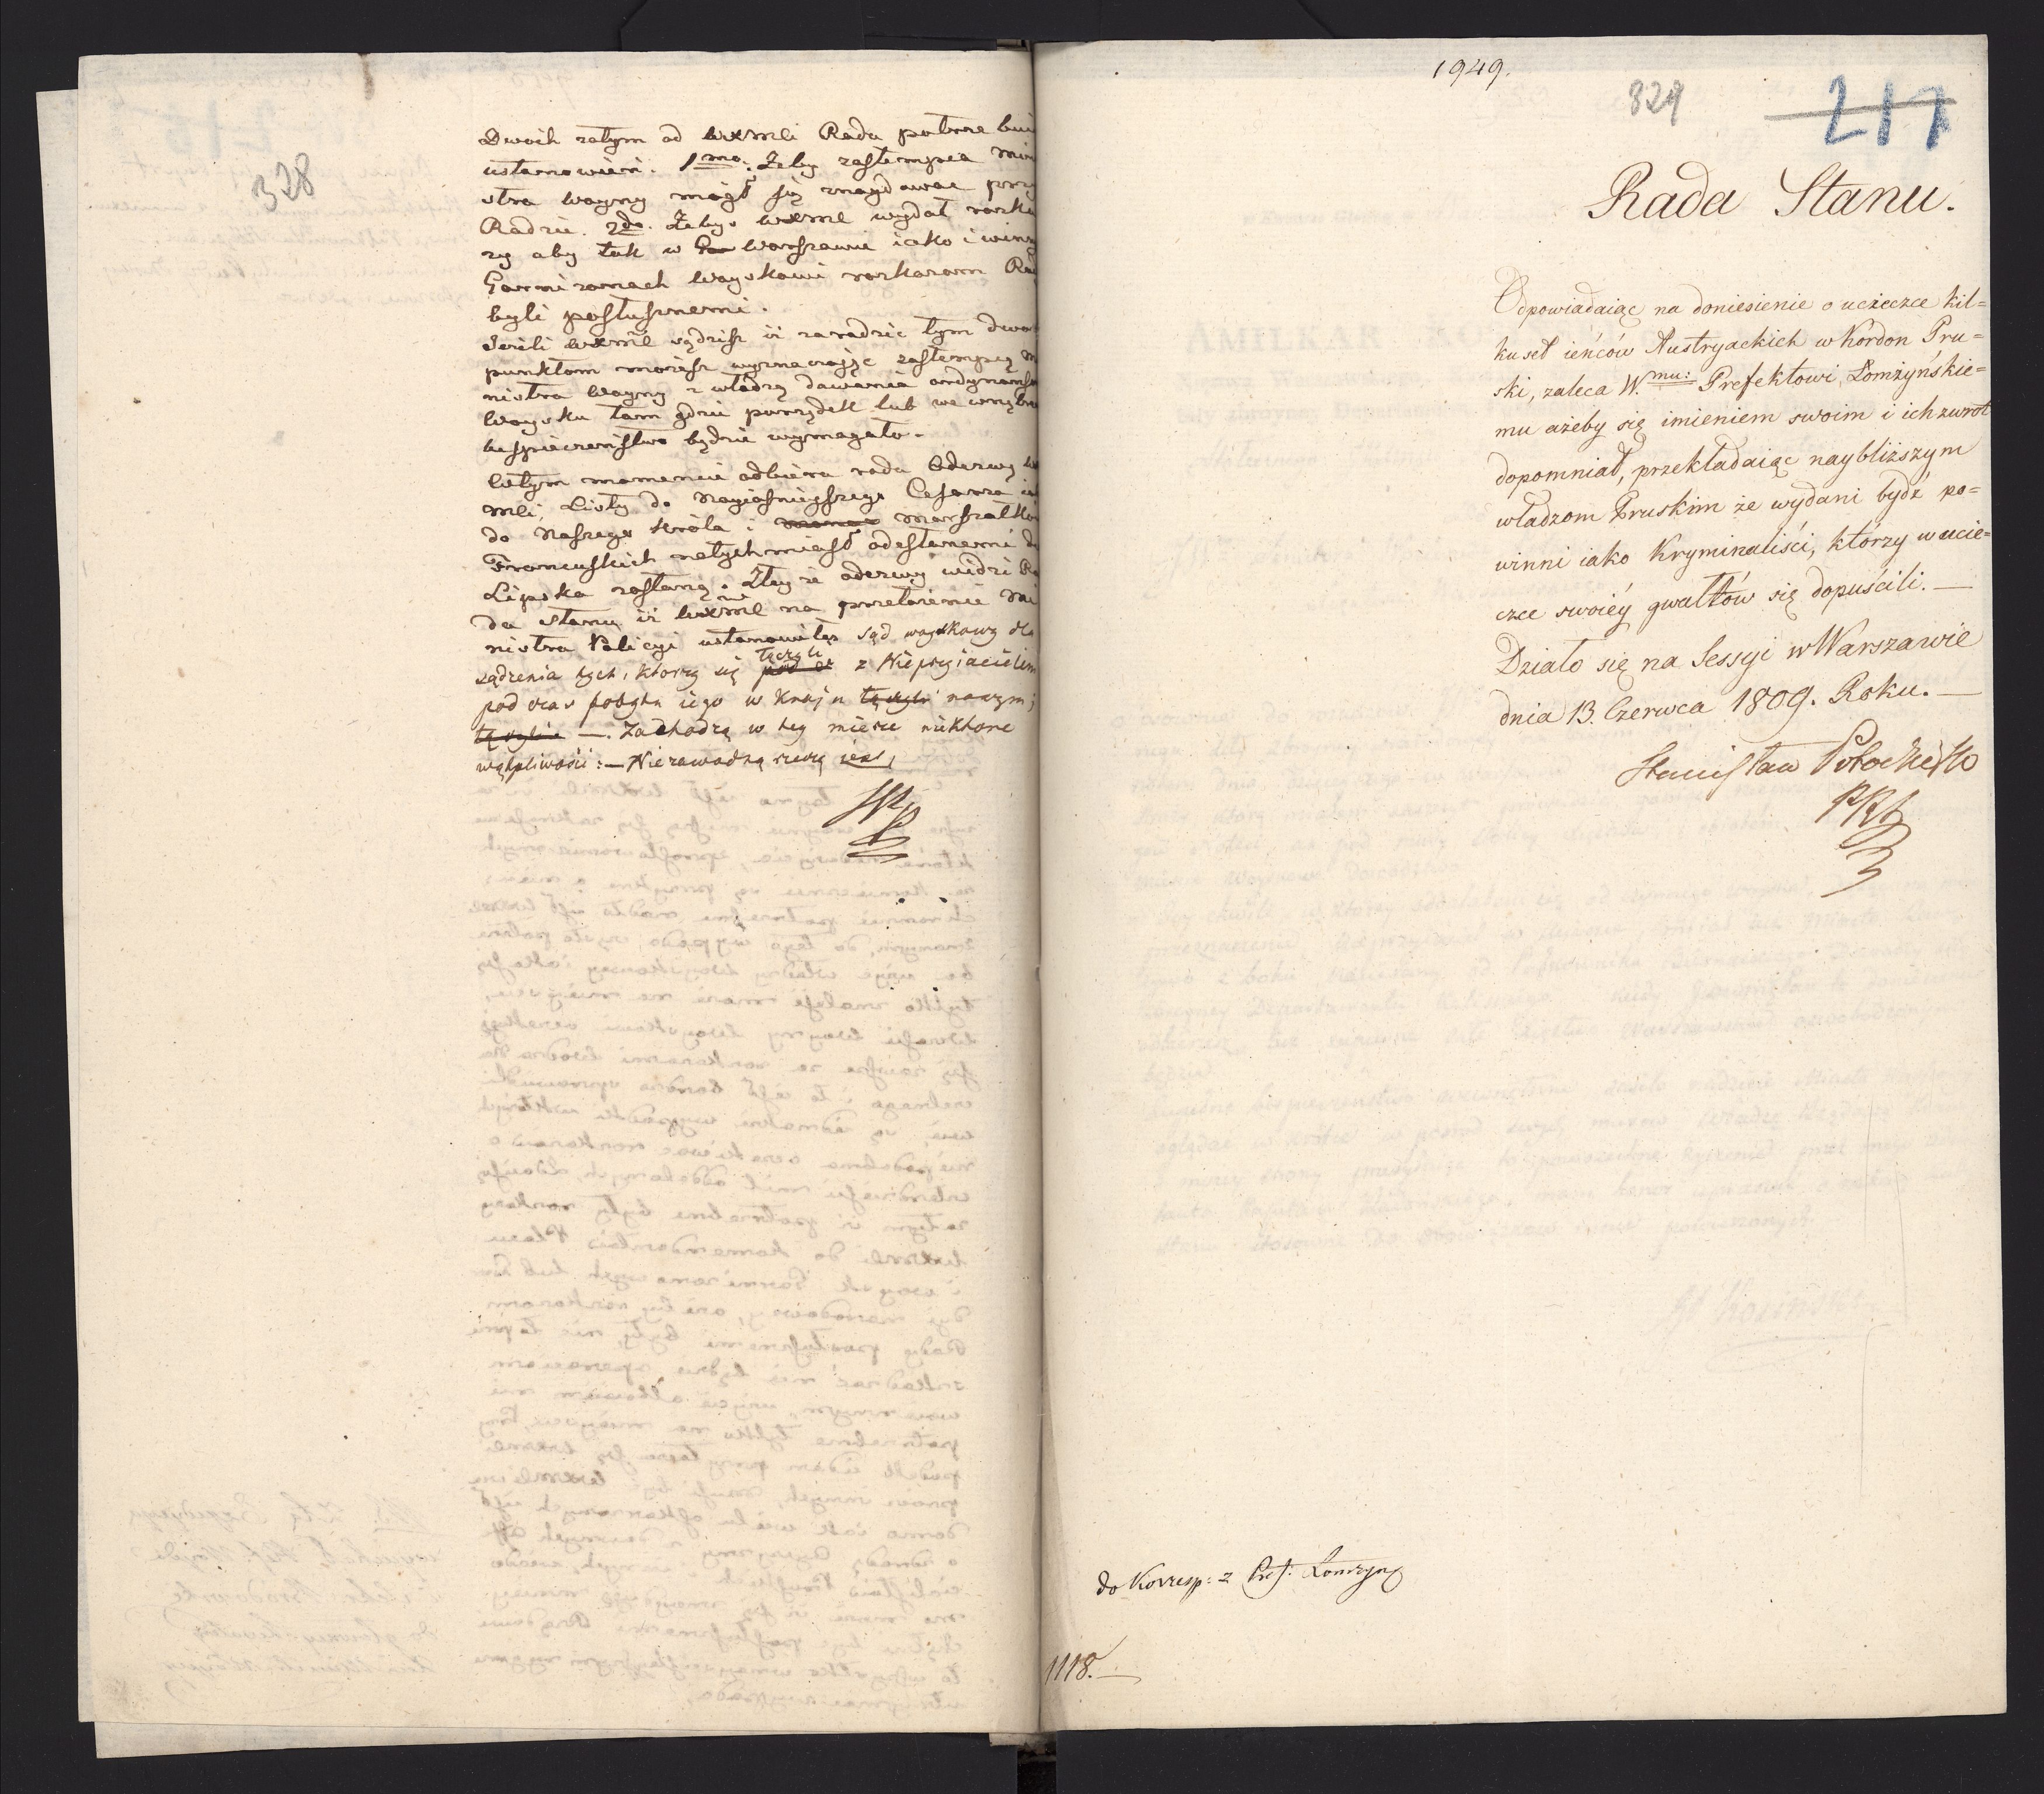 328
Dwoch zatym od WXMci Rada potrzebuie
ustanowień. 1mo. Żeby zastempca Mini
stra Woyny mógł się znaydować przy
Radzie. 2do. Żeby WXMć wydał rozka
zy aby tak w Warszawie iako i w inny
Garnizonach Woyskowi rozkazom Ra
byli posłusznemi.
Jeżeli WXMć sądzisz iż zaradzić tym dwo
punktom możesz wyznaczając zastempcę Mi
nistra Woyny z władzą dawania ordynansów
Woysku tam gdzie porządek lub wewnętrzne
bespieczeństwo będzie wymagało.
W tym momencie odbiera rada Odezwę WX
Mci, Listy do Nayiaśnieyszego Cesarza iak
do Naszego Króla i Marszałków
Francuskich natychmiast odesłanemi do
Lipska zostaną. Z tey że odezwy widzi Ra
da stanu iż WXMć na przełożenie Mi
nistra Policyi ustanowiłeś sąd woyskowy dla
sądzenia tych, którzy się łączyli z Nieprzyiacielem
podczas pobytu iego w Kraju naszym;
Zachodzą w tey mierze niektóre
wątpliwości: — Niezawodną rzeczą iest,
1949.
329
217
Rada Stanu.
Odpowiadaiąc na doniesienie o ucieczce kil=
kuset ieńców Austryackich w Kordon Pru=
ski, zaleca W.mu: Prefektowi Łomżyńskie=
mu ażeby się imieniem swoim i ich zwrot
dopomniał, przekładaiąc naybliższym
władzom Pruskim że wydani bydź po=
winni iako Kryminaliści, którzy w ucie=
czce swoiéy gwałtów się dopuścili. —
Działo się na Sessyi w Warszawie
dnia 13. Czerwca 1809. Roku. —
Stanisław Potocki
do Korresp: z Pref: Łomżyń
1118. —